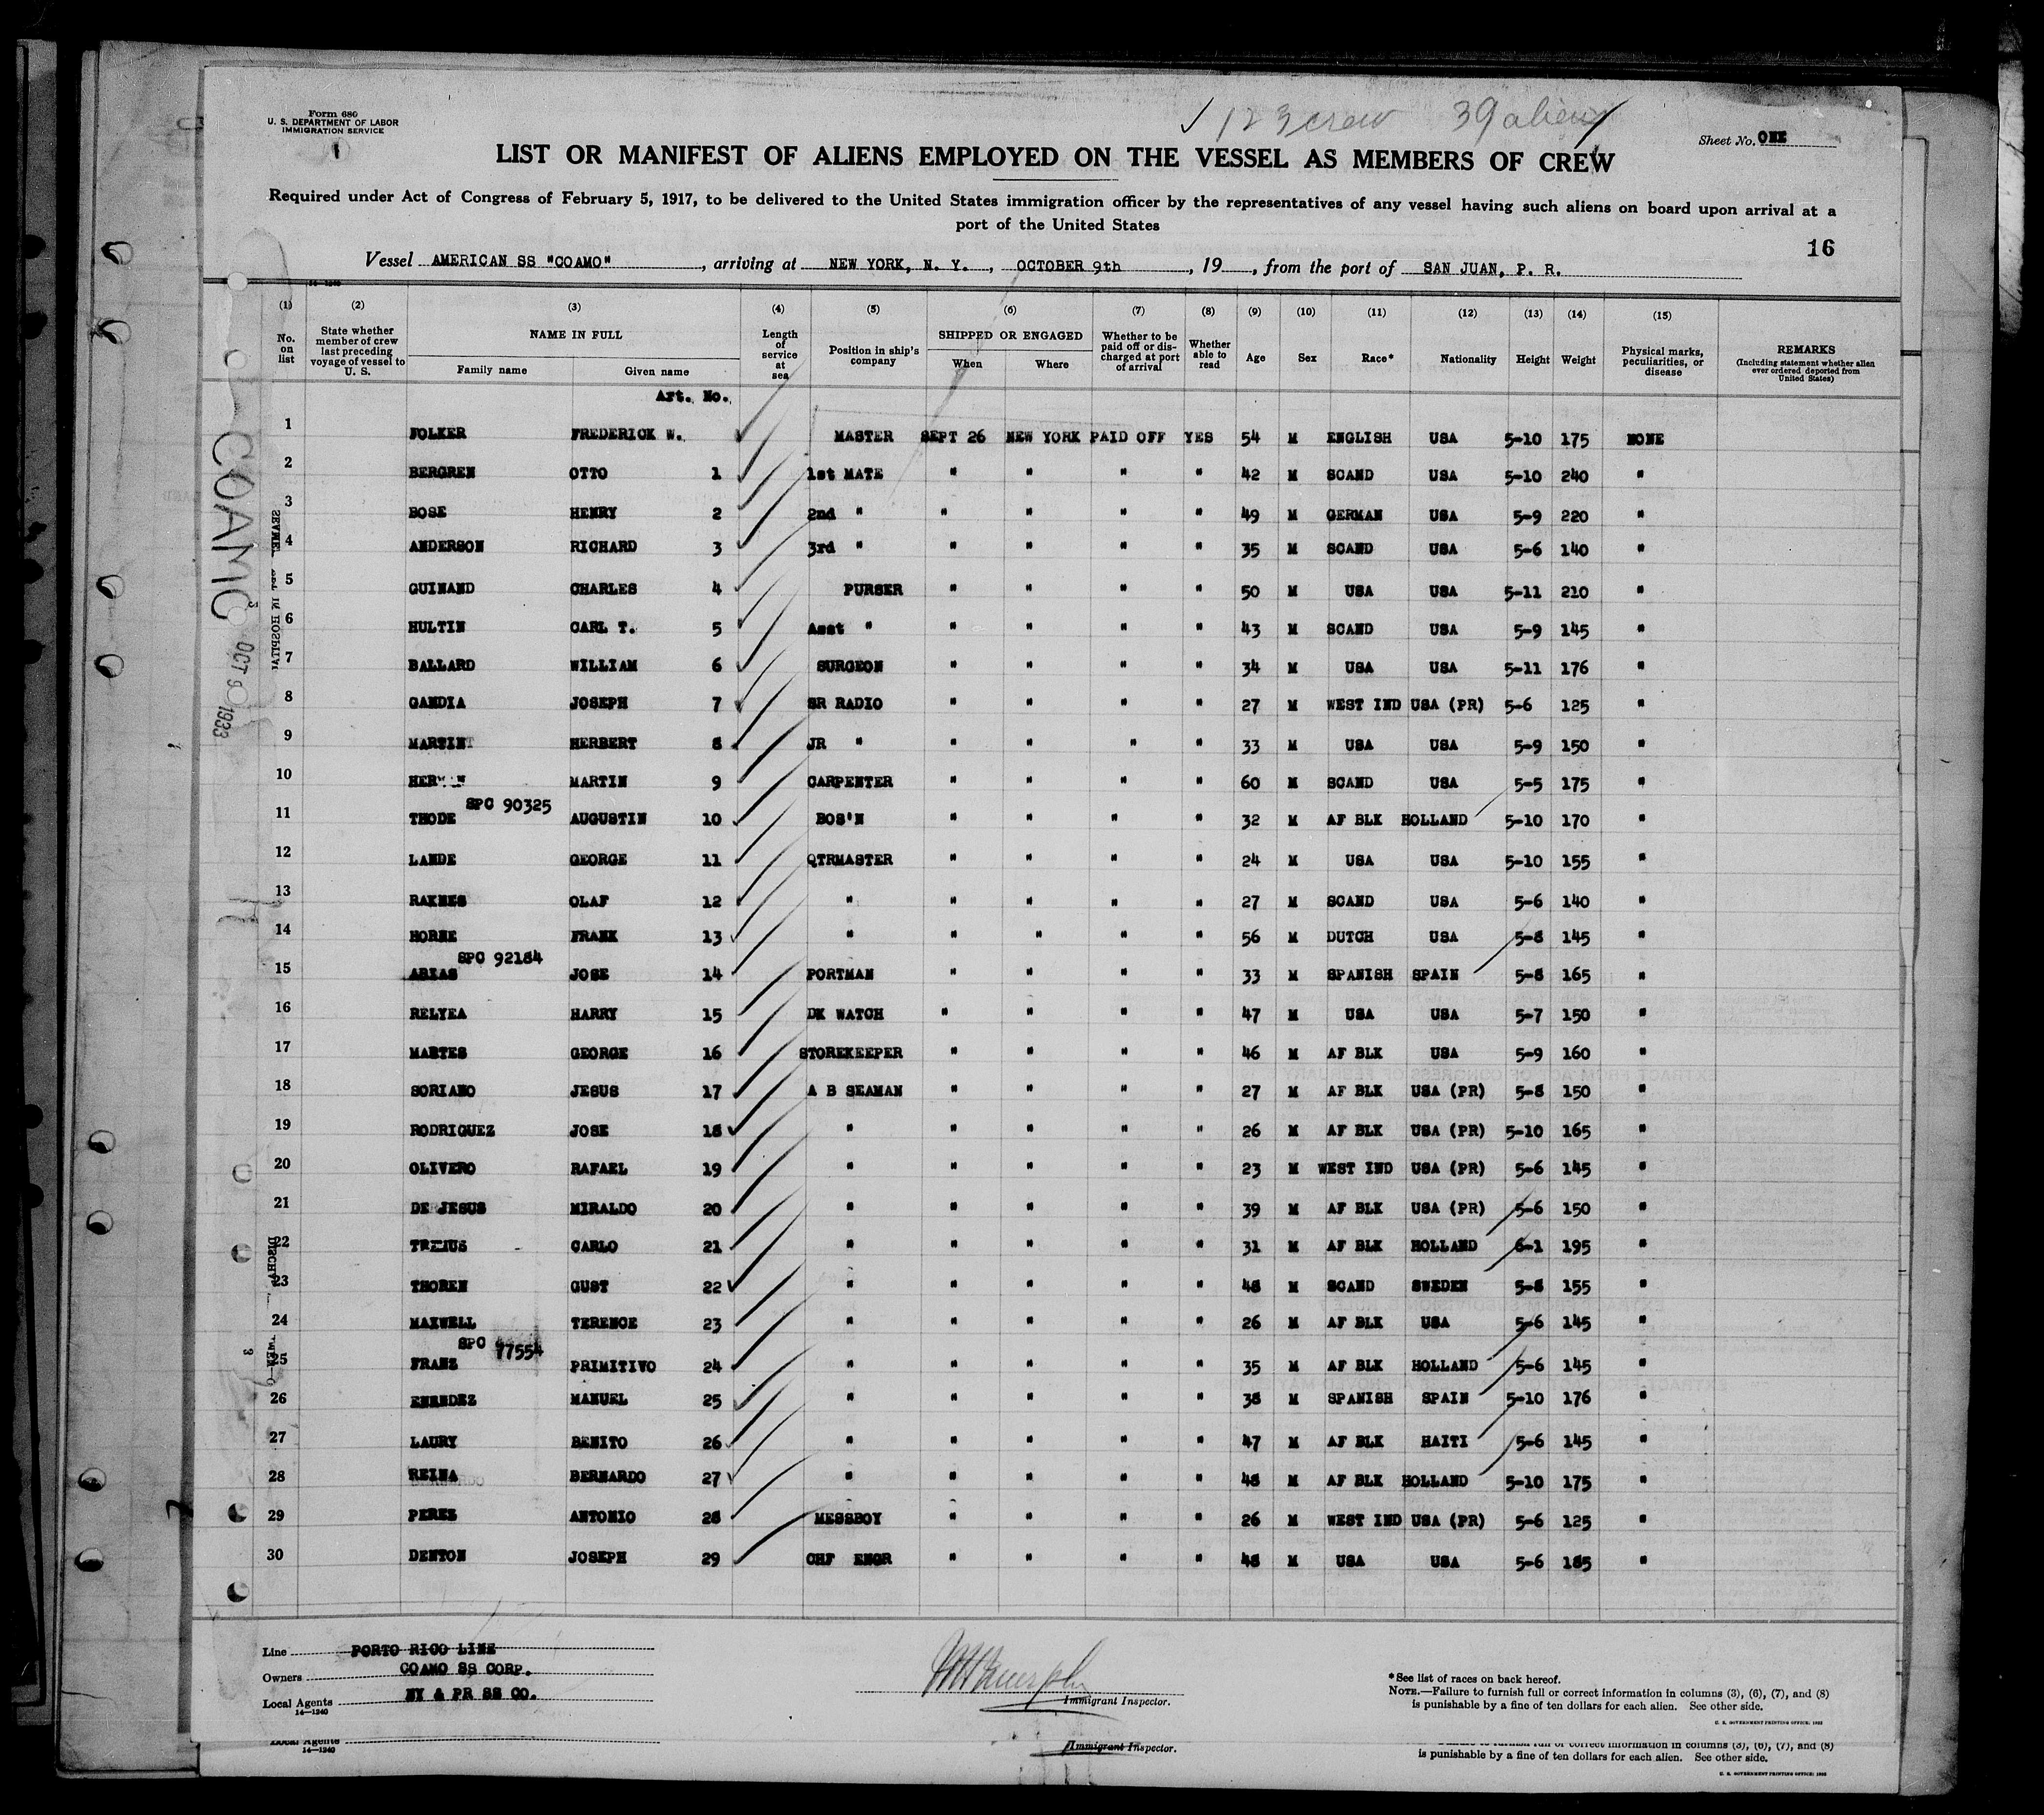 ✓ 123 crew 39 aliens
Form 680
U. S. DEPARTMENT OF LABOR
IMMIGRATION SERVICE
Sheet No. ONE
LIST OR MANIFEST OF ALIENS EMPLOYED ON THE VESSEL AS MEMBERS OF CREW
Required under Act of Congress of February 5, 1917, to be delivered to the United States immigration officer by the representatives of any vessel having such aliens on board upon arrival at a
port of the United States
16
Vessel AMERICAN SS "COAMO", arriving at NEW YORK, N. Y., OCTOBER 9th, 19, from the port of SAN JUAN, P. R.
14—1240
(1) (2) (3) (4) (5) (6) (7) (8) (9) (10) (11) (12) (13) (14) (15)
No. on list
State whether member of crew last preceding voyage of vessel to U. S.
NAME IN FULL
Family name Given name
Length of service at sea
Position in ship's company
SHIPPED OR ENGAGED
When Where
Whether to be paid off or discharged at port of arrival
Whether able to read
Age Sex Race* Nationality Height Weight
Physical marks, peculiarities, or disease
REMARKS
(Including statement whether alien ever ordered deported from United States)
Art. No.
1 FOLKER FREDERICK W. MASTER SEPT 26 NEW YORK PAID OFF YES 54 M ENGLISH USA 5-10 175 NONE
2 BERGREN OTTO 1 1st MATE " " " " 42 M SCAND USA 5-10 240 "
3 BOSE HENRY 2 2nd " " " " " 49 M GERMAN USA 5-9 220 "
4 ANDERSON RICHARD 3 3rd " " " " " 35 M SCAND USA 5-6 140 "
5 GUINAND CHARLES 4 PURSER " " " " 50 M USA USA 5-11 210 "
6 HULTIN CARL T. 5 Asst " " " " " 43 M SCAND USA 5-9 145 "
7 BALLARD WILLIAM 6 SURGEON " " " " 34 M USA USA 5-11 176 "
8 GANDIA JOSEPH 7 SR RADIO " " " " 27 M WEST IND USA (PR) 5-6 125 "
9 MARTIN HERBERT 8 JR " " " " " 33 M USA USA 5-9 150 "
10 MARTIN 9 CARPENTER " " " " 60 M SCAND USA 5-5 175 "
SPC 90325
11 THODE AUGUSTIN 10 BOS'N " " " " 32 M AF BLK HOLLAND 5-10 170 "
12 LANDE GEORGE 11 QTRMASTER " " " " 24 M USA USA 5-10 155 "
13 RAKNES OLAF 12 " " " " " 27 M SCAND USA 5-6 140 "
14 HORNE FRANK 13 " " " " " 56 M DUTCH USA 5-8 145 "
SPC 92184
15 ARIAS JOSE 14 PORTMAN " " " " 33 M SPANISH SPAIN 5-8 165 "
16 RELYEA HARRY 15 DK WATCH " " " " 47 M USA USA 5-7 150 "
17 MARTES GEORGE 16 STOREKEEPER " " " " 46 M AF BLK USA 5-9 160 "
18 SORIANO JESUS 17 A B SEAMAN " " " " 27 M AF BLK USA (PR) 5-8 150 "
19 RODRIGUEZ JOSE 18 " " " " " 26 M AF BLK USA (PR) 5-10 165 "
20 OLIVERO RAFAEL 19 " " " " " 23 M WEST IND USA (PR) 5-6 145 "
21 DE JESUS MIRALDO 20 " " " " " 39 M AF BLK USA (PR) 5-6 150 "
22 CARLO 21 " " " " " 31 M AF BLK HOLLAND 6-1 195 "
23 THOREN GUST 22 " " " " " 48 M SCAND SWEDEN 5-8 155 "
24 MAXWELL TERENCE 23 " " " " " 26 M AF BLK USA 5-6 145 "
SPC 77554
25 FRANZ PRIMITIVO 24 " " " " " 35 M AF BLK HOLLAND 5-6 145 "
26 MANUEL 25 " " " " " 38 M SPANISH SPAIN 5-10 176 "
27 LAURY BENITO 26 " " " " " 47 M AF BLK HAITI 5-6 145 "
28 REINA BERNARDO 27 " " " " " 48 M AF BLK HOLLAND 5-10 175 "
29 PEREZ ANTONIO 28 MESSBOY " " " " 26 M WEST IND USA (PR) 5-6 125 "
30 DENTON JOSEPH 29 CHF ENGR " " " " 48 M USA USA 5-6 185 "
COAMO
OCT 9 1933
Line PORTO RICO LINE
Owners COAMO SS CORP.
Local Agents NY & PR SS CO.
14—1240
Immigrant Inspector.
*See list of races on back hereof.
NOTE.—Failure to furnish full or correct information in columns (3), (6), (7), and (8)
is punishable by a fine of ten dollars for each alien. See other side.
U. S. GOVERNMENT PRINTING OFFICE: 1932
Local Agents
14—1240
Immigrant Inspector.
is punishable by a fine of ten dollars for each alien. See other side.